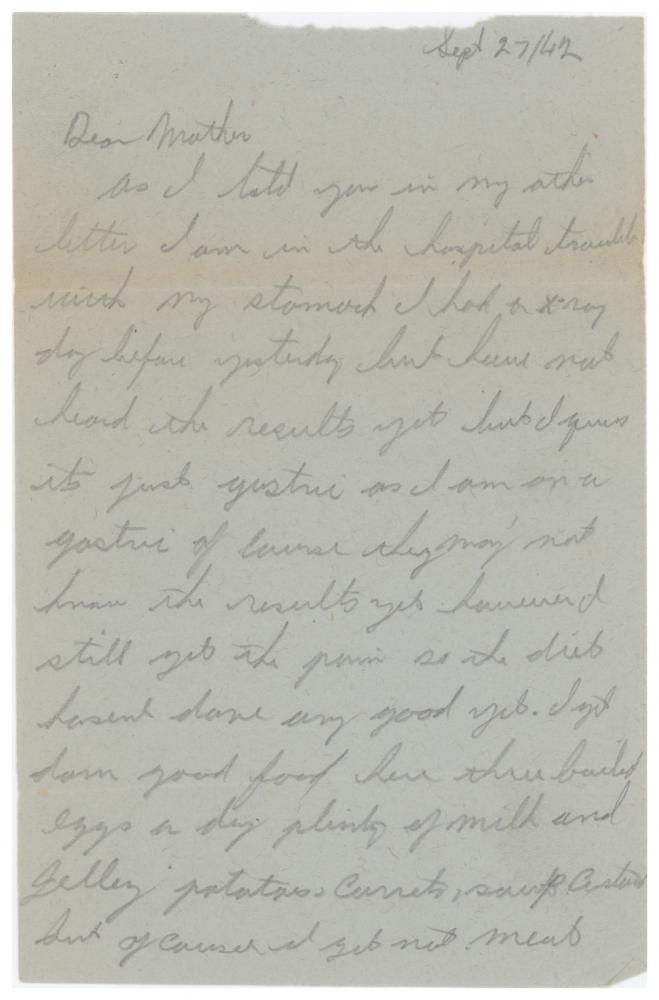 Sept 27/42
Dear Mother
As I told you in my other
letter I am in the hospital trouble
with my stomach I had a x-ray
day before yesterday but have not
heard the results yet but I guess
its just gastric as I am on a
gastric of course they may not
know the results yet however I
still get the pain so the diet
hasent done any good yet. I get
darn good food here three boiled
eggs a day plenty of milk and
Jelley potatoes, Carrets, soup Custard
but of course I get not meat